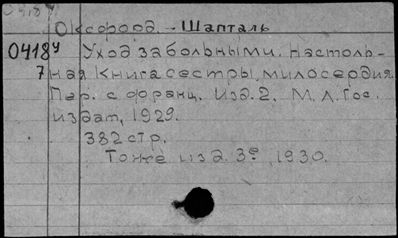 04187
Оксфорд. - Шапталь
0418У Уход за больными. Настоль-
7 ная книга сестры милосердия.
Пер. с франц. Изд. 2. М. Л. Гос.
издат, 1929.
382 стр.
Тоже изд. 3е, 1930.